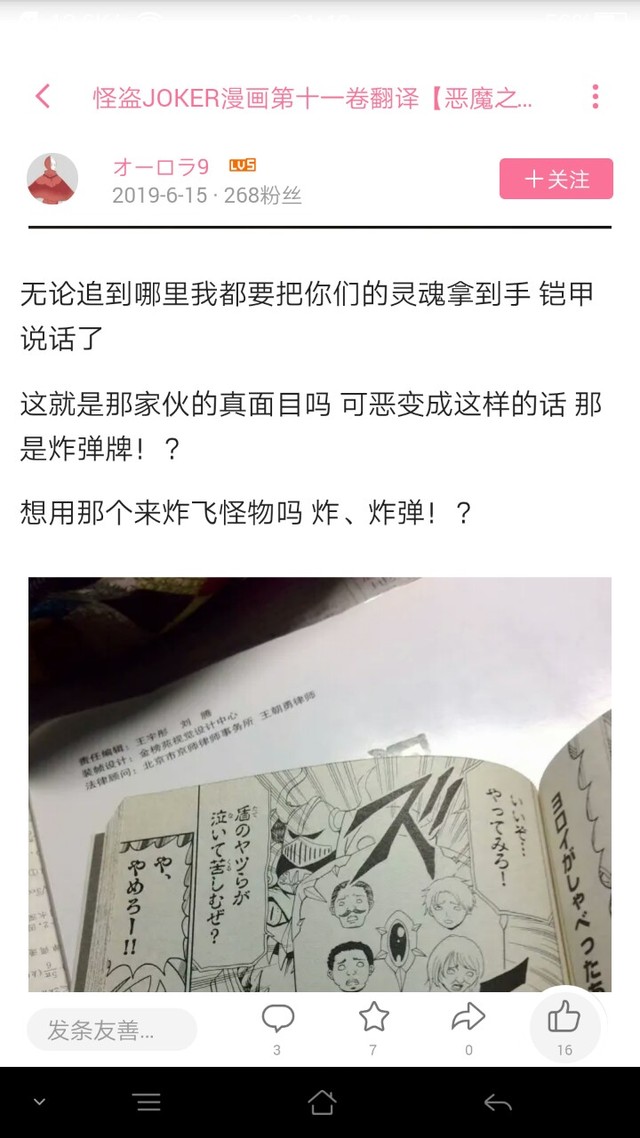 怪盗JOKER漫画第十一卷翻译【恶魔之...
オーロラ9 LV5
2019-6-15 · 268粉丝
＋关注
无论追到哪里我都要把你们的灵魂拿到手 铠甲
说话了
这就是那家伙的真面目吗 可恶变成这样的话 那
是炸弹牌！？
想用那个来炸飞怪物吗 炸、炸弹！？
责任编辑：王宇彤 刘 腾
装帧设计：金榜苑视觉设计中心
法律顾问：北京市京师律师事务所 王朝勇律师
ヨロイがしゃべった
いいぞ…
やってみろ！
ズ
盾のヤツらが
泣いて苦しむぜ？
や、
やめろー!!
发条友善...
3
7
0
16